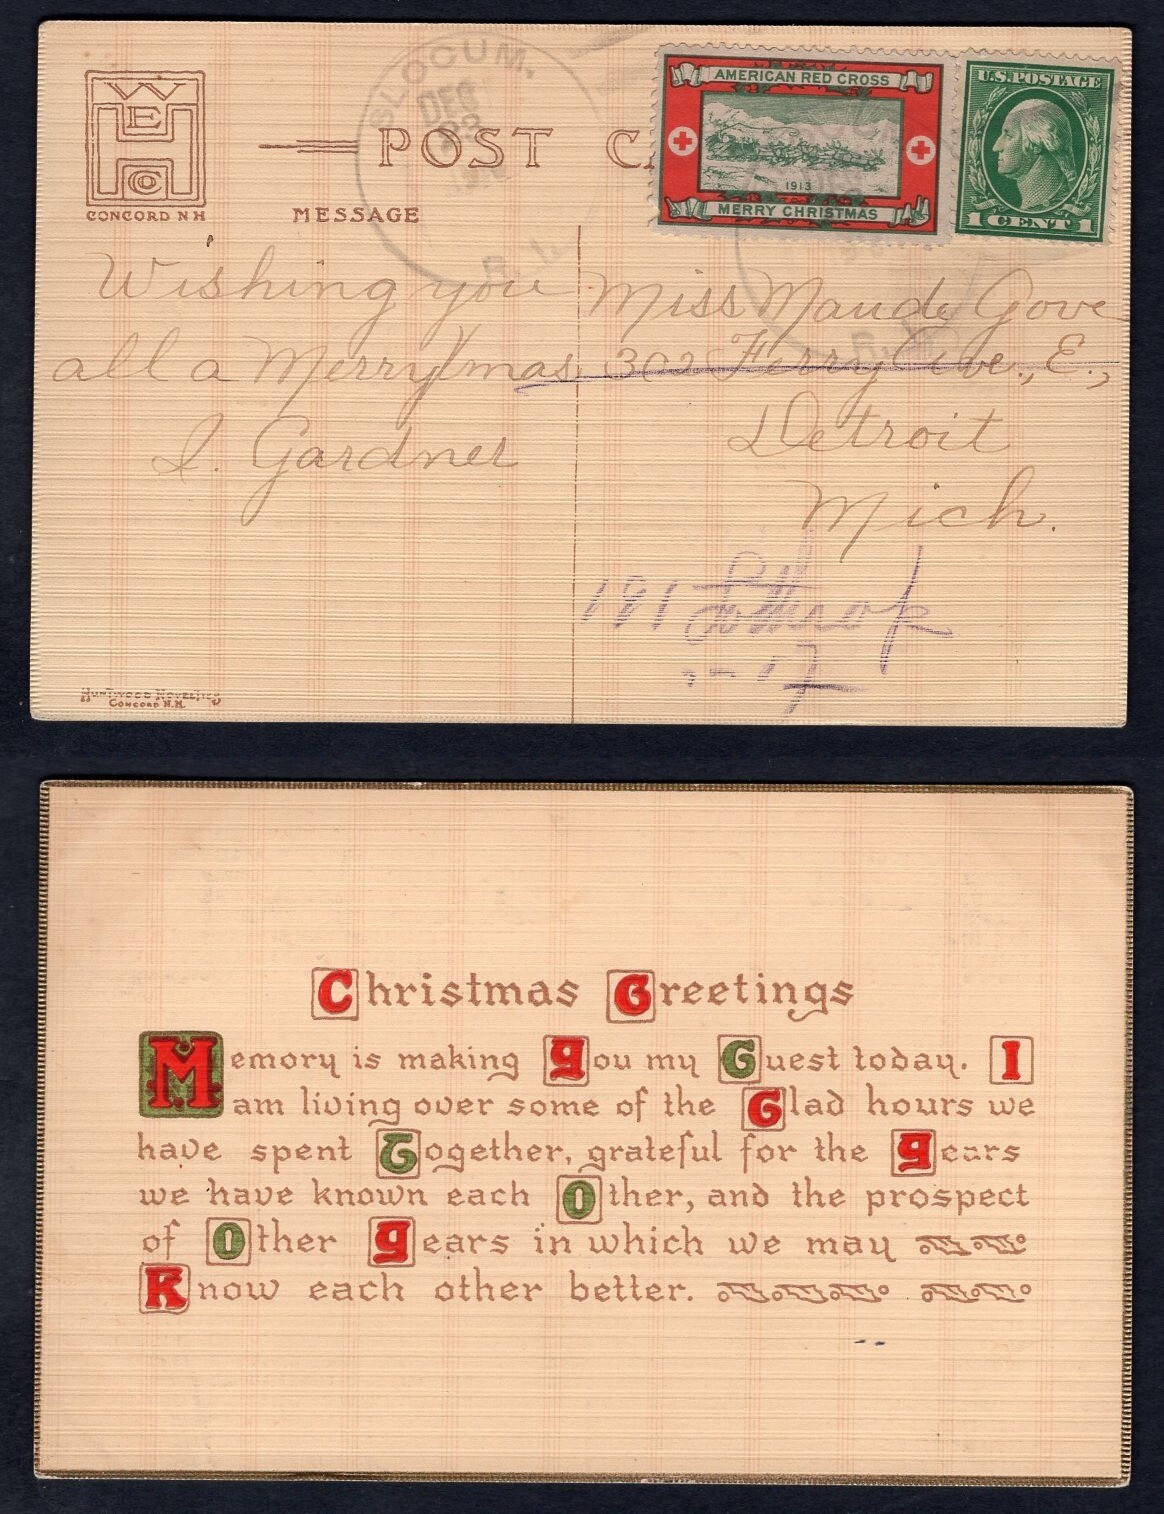 WEH CO
CONCORD N H
POST CA
MESSAGE
SLOCUM.
DEC
23
R.I.
AMERICAN RED CROSS
1913
MERRY CHRISTMAS
U.S. POSTAGE
1 CENT 1
Wishing you
all a Merry Xmas
I. Gardner
Miss Maude Gove
302 Ferry Ave., E.,
Detroit
Mich.
181 Lothrop
Huntwood Novelties
Concord N.H.
Christmas Greetings
Memory is making you my Guest today. I
am living over some of the Glad hours we
have spent Together, grateful for the years
we have known each Other, and the prospect
of Other years in which we may
Know each other better.